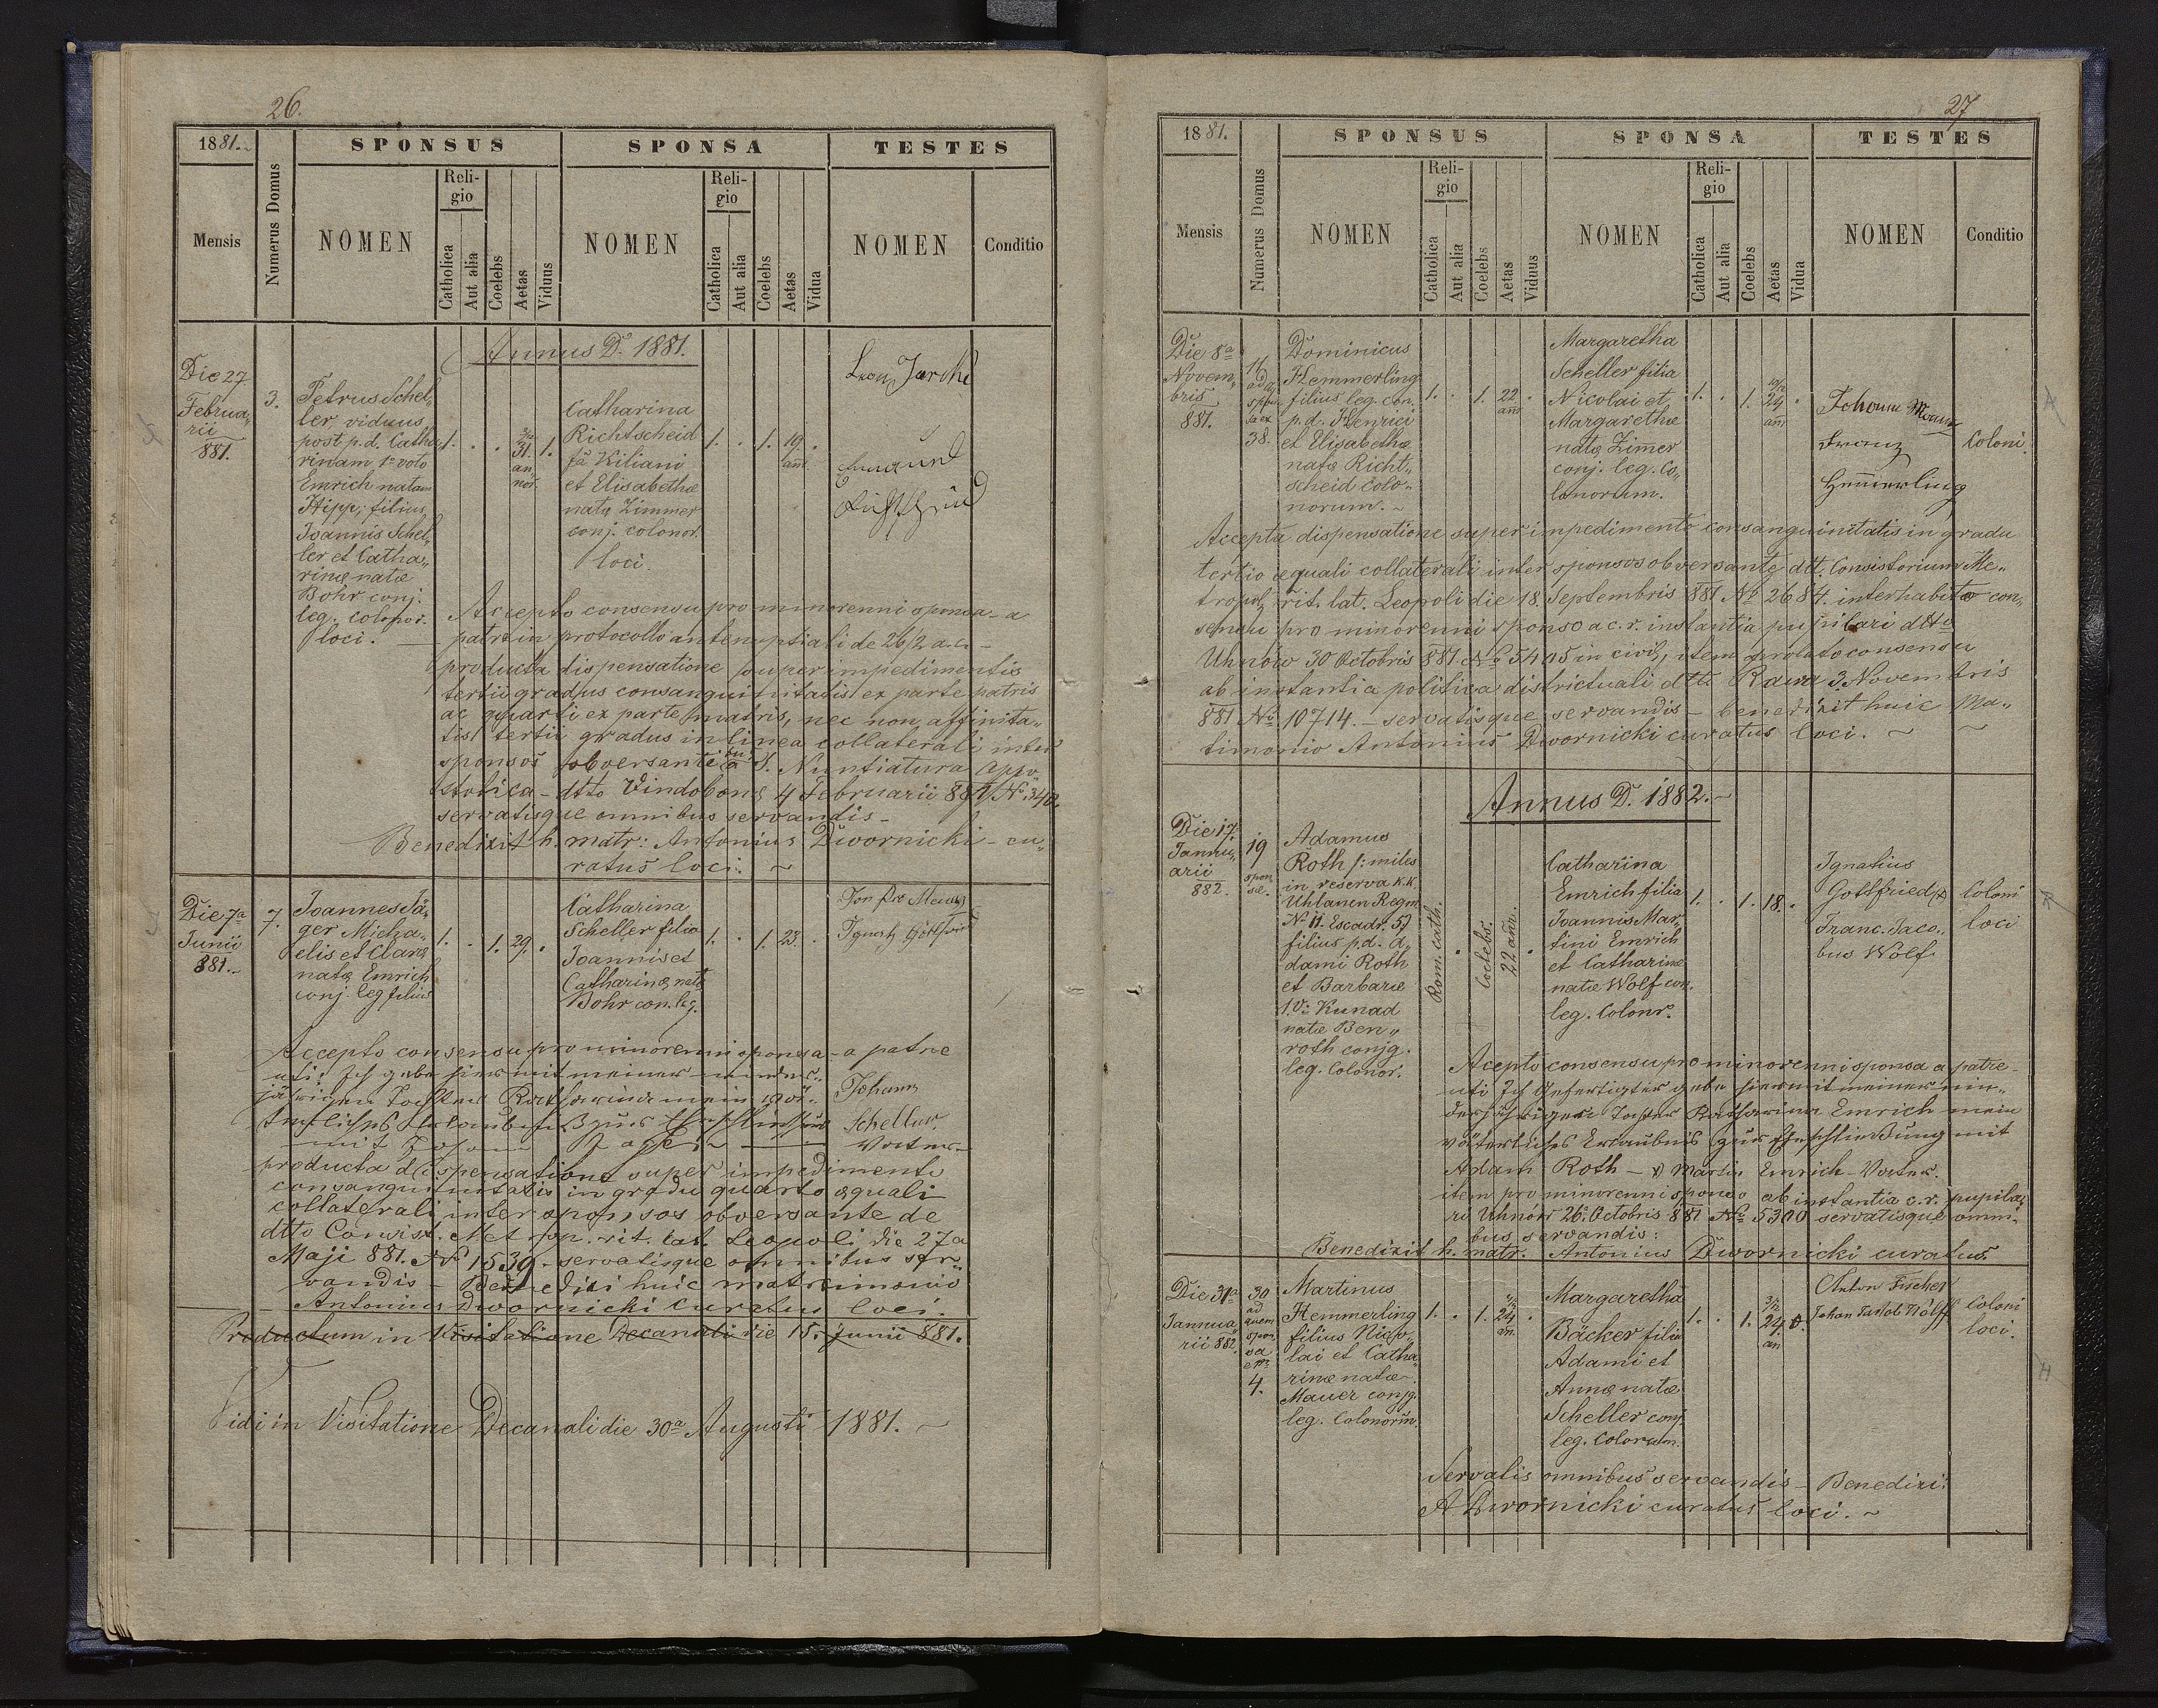 26.
1881.
SPONSUS
SPONSA
TESTES
Mensis
Numerus Domus
NOMEN
Religio
Catholica
Aut alia
Coelebs
Aetas
Viduus
NOMEN
Religio
Catholica
Aut alia
Coelebs
Aetas
Vidua
NOMEN
Conditio
Annus D. 1881.
Die 27
Februa„
rii
881.
3.
Petrus Schel„
ler, viduus
post p.d. Catha
rinam 1º voto
Emrich natam
Hipp; filius
Joannis Schel„
ler et Catha„
rinæ natæ
Bohr conj.
leg. colonor.
loci.
1. . . 31. 1.
an
nor.
Catharina
Richtscheid
fa Kiliani
et Elisabethæ
natæ Zimmer
conj. colonor.
loci.
1. . 1. 19 .
ann.
Accepto consensu pro minorenni sponsa - a
patre in protocollo antenuptiali de 26/2 a.c. -
producta dispensatione super impedimentis
tertii gradus consanguinitatis ex parte patris
ac quarti ex parte matris, nec non affinita„
tis tertii gradus in linea collaterali inter
sponsos obversantibus a S. Nuntiatura Apo„
stolica - dtto Vindobonæ 4 Februarii 881 Nº 340.
servatisque omnibus servandis -
Benedixit h. matr: Antonius Dwornicki - cu„
ratus loci. ~
Die 7a
Junii
881.
7.
Joannes Jä„
ger Micha„
elis et Claræ
natæ Emrich
conj. leg filius
1. . 1. 29. .
Catharina
Scheller filia
Joannis et
Catharinæ natæ
Bohr con. leg.
1. . 1. 23. .
Accepto consensu pro minorenni sponsa - a patre
uti: Ich gebe hiermit meiner minder„
jährigen Tochter Katharina mein vä„
terliches Erlaubniß zur Eheschließung
mit Johann Jäger
Johann
Scheller,
Vater
producta dispensatione super impedimento
consanguinitatis in gradu quarto æquali
collaterali inter sponsos obversante de
dtto Consist. Metrop. rit. lat. Leopoli die 27a
Maji 881. Nº 1539 - servatisque omnibus ser„
vandis - Benedixi huic matrimonio
Antonius Dwornicki curatus loci.
Productum in Visitatione Decanali die 15. Junii 881.
Vidi in Visitatione Decanali die 30a Augusti 1881. ~
27
1881.
SPONSUS
SPONSA
TESTES
Mensis
Numerus Domus
NOMEN
Religio
Catholica
Aut alia
Coelebs
Aetas
Viduus
NOMEN
Religio
Catholica
Aut alia
Coelebs
Aetas
Vidua
NOMEN
Conditio
Die 8a
Novem„
bris
881.
38.
Dominicus
Hemmerling
filius leg. con.
p.d. Henrici
et Elisabethæ
natæ Richt„
scheid colo„
norum. ~
1. . 1. 22 .
ann
Margaretha
Scheller filia
Nicolai et
Margarethæ
natæ Zimmer
conj. leg. Co„
lonorum.
1. . 1. 24 .
ann
Johann Mauer
Franz
Hemmerling
Coloni.
Accepta dispensatione super impedimento consanguinitatis in gradu
tertio æquali collaterali inter sponsos obversante dtt. Consistorium Me„
tropol. rit. lat. Leopoli die 18. Septembris 881 Nº 2684. interhabito con„
sensu pro minorenni sponso a c. r. instantia pupilari dtto
Uhnów 30 Octobris 881. Nº 5405 in civil, item probato consensu
ab instantia politica districtuali dtt. Rawa 3. Novembris
881 Nº 10714. - servatisque servandis - benedixit huic Ma„
trimonio Antonius Dwornicki curatus loci. ~
Annus D. 1882. ~
Die 17.
Janu„
arii
882.
19
spon
sæ.
Adamus
Roth /: miles
in reserva K.K.
Uhlanen Regm
Nº 11. Escadr. 5/
filius p.d. A„
dami Roth
et Barbaræ
1. Vº Kunad
natæ Ben„
roth conjg.
leg. Colonor.
Rom. cath.
.
Coelebs.
22 ann.
.
Catharina
Emrich filia
Joannis Mar„
tini Emrich
et Catharinæ
natæ Wolf con.
leg. Colonr.
1. . 1. 18. .
Ignatius
Gottfried
Franc. Jaco„
bus Wolf
Coloni
loci
Acepto consensu pro minorenni sponsa a patre -
uti Ich Gefertigter gebe hiermit meiner min„
derjährigen Tochter Katharina Emrich mein
väterliches Erlaubnis zur Eheschließung mit
Adam Roth - Martin Emrich - Vater.
item pro minorenni sponso ab instantia c. r. pupila„
ri Uhnów 26. Octobris 881 Nº 5300 servatisque omni„
bus servandis:
Benedixit h. matr. Antonius Dwornicki curatus.
Die 31a
Janua„
rii 882.
30
ad
quem
spon
sa
4.
Martinus
Hemmerling
filius Nico„
lai et Catha„
rinæ natæ
Mauer conjg.
leg. Colonorum.
1. . 1. 24 .
an.
Margaretha
Bäcker filia
Adami et
Annæ natæ
Scheller conj.
leg. Colonum.
1. . 1. 24 0.
an
Anton Fischer
Johan Jakob Wolff
Coloni
loci.
Servatis omnibus servandis - Benedixi:
A Dwornicki curatus loci. ~